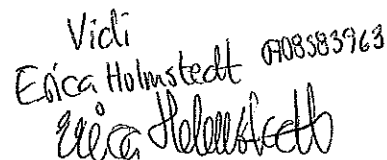 Vidi
Erica Holmstedt 0708583963
Erica Holmstedt